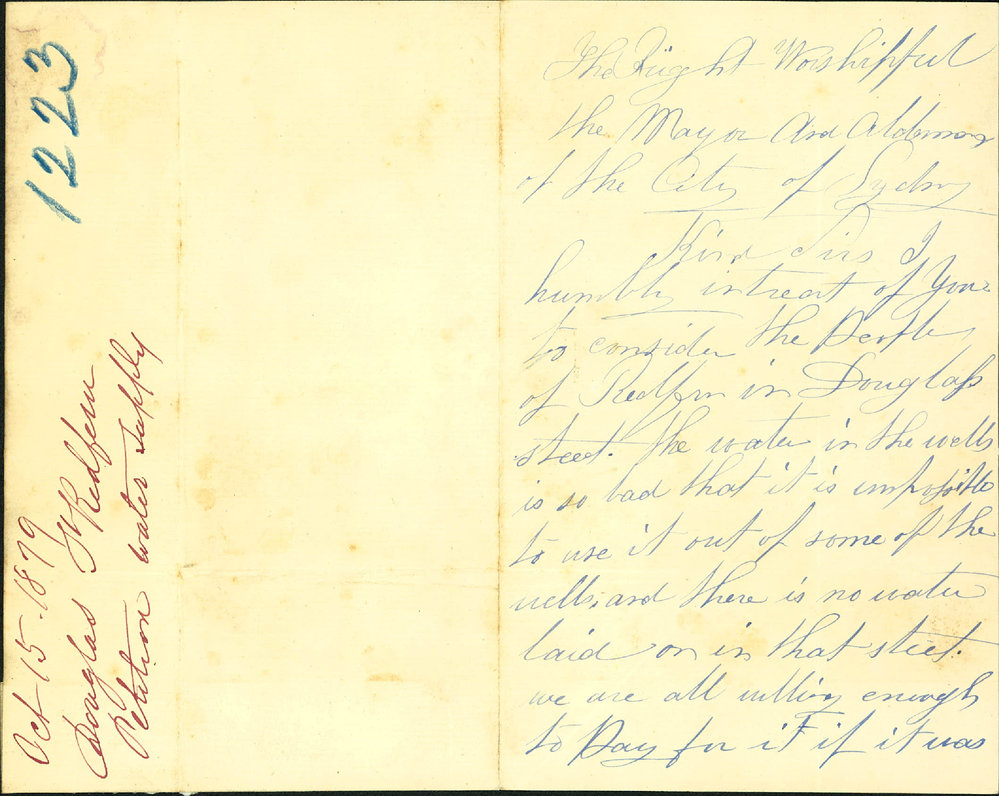 1223
Oct 15. 1879
Douglas St Redfern
Petition water supply
The Right Worshipful
the Mayor And Aldermen
of the City of Sydny
Kind Sirs I
humbly intreat of You
to consider the People
of Redfern in Douglass
steet. the water in the wells
is so bad that it is impossible
to use it out of some of the
wells. and there is no water
laid on in that steet.
we are all willing enough
to Pay for iT if it was